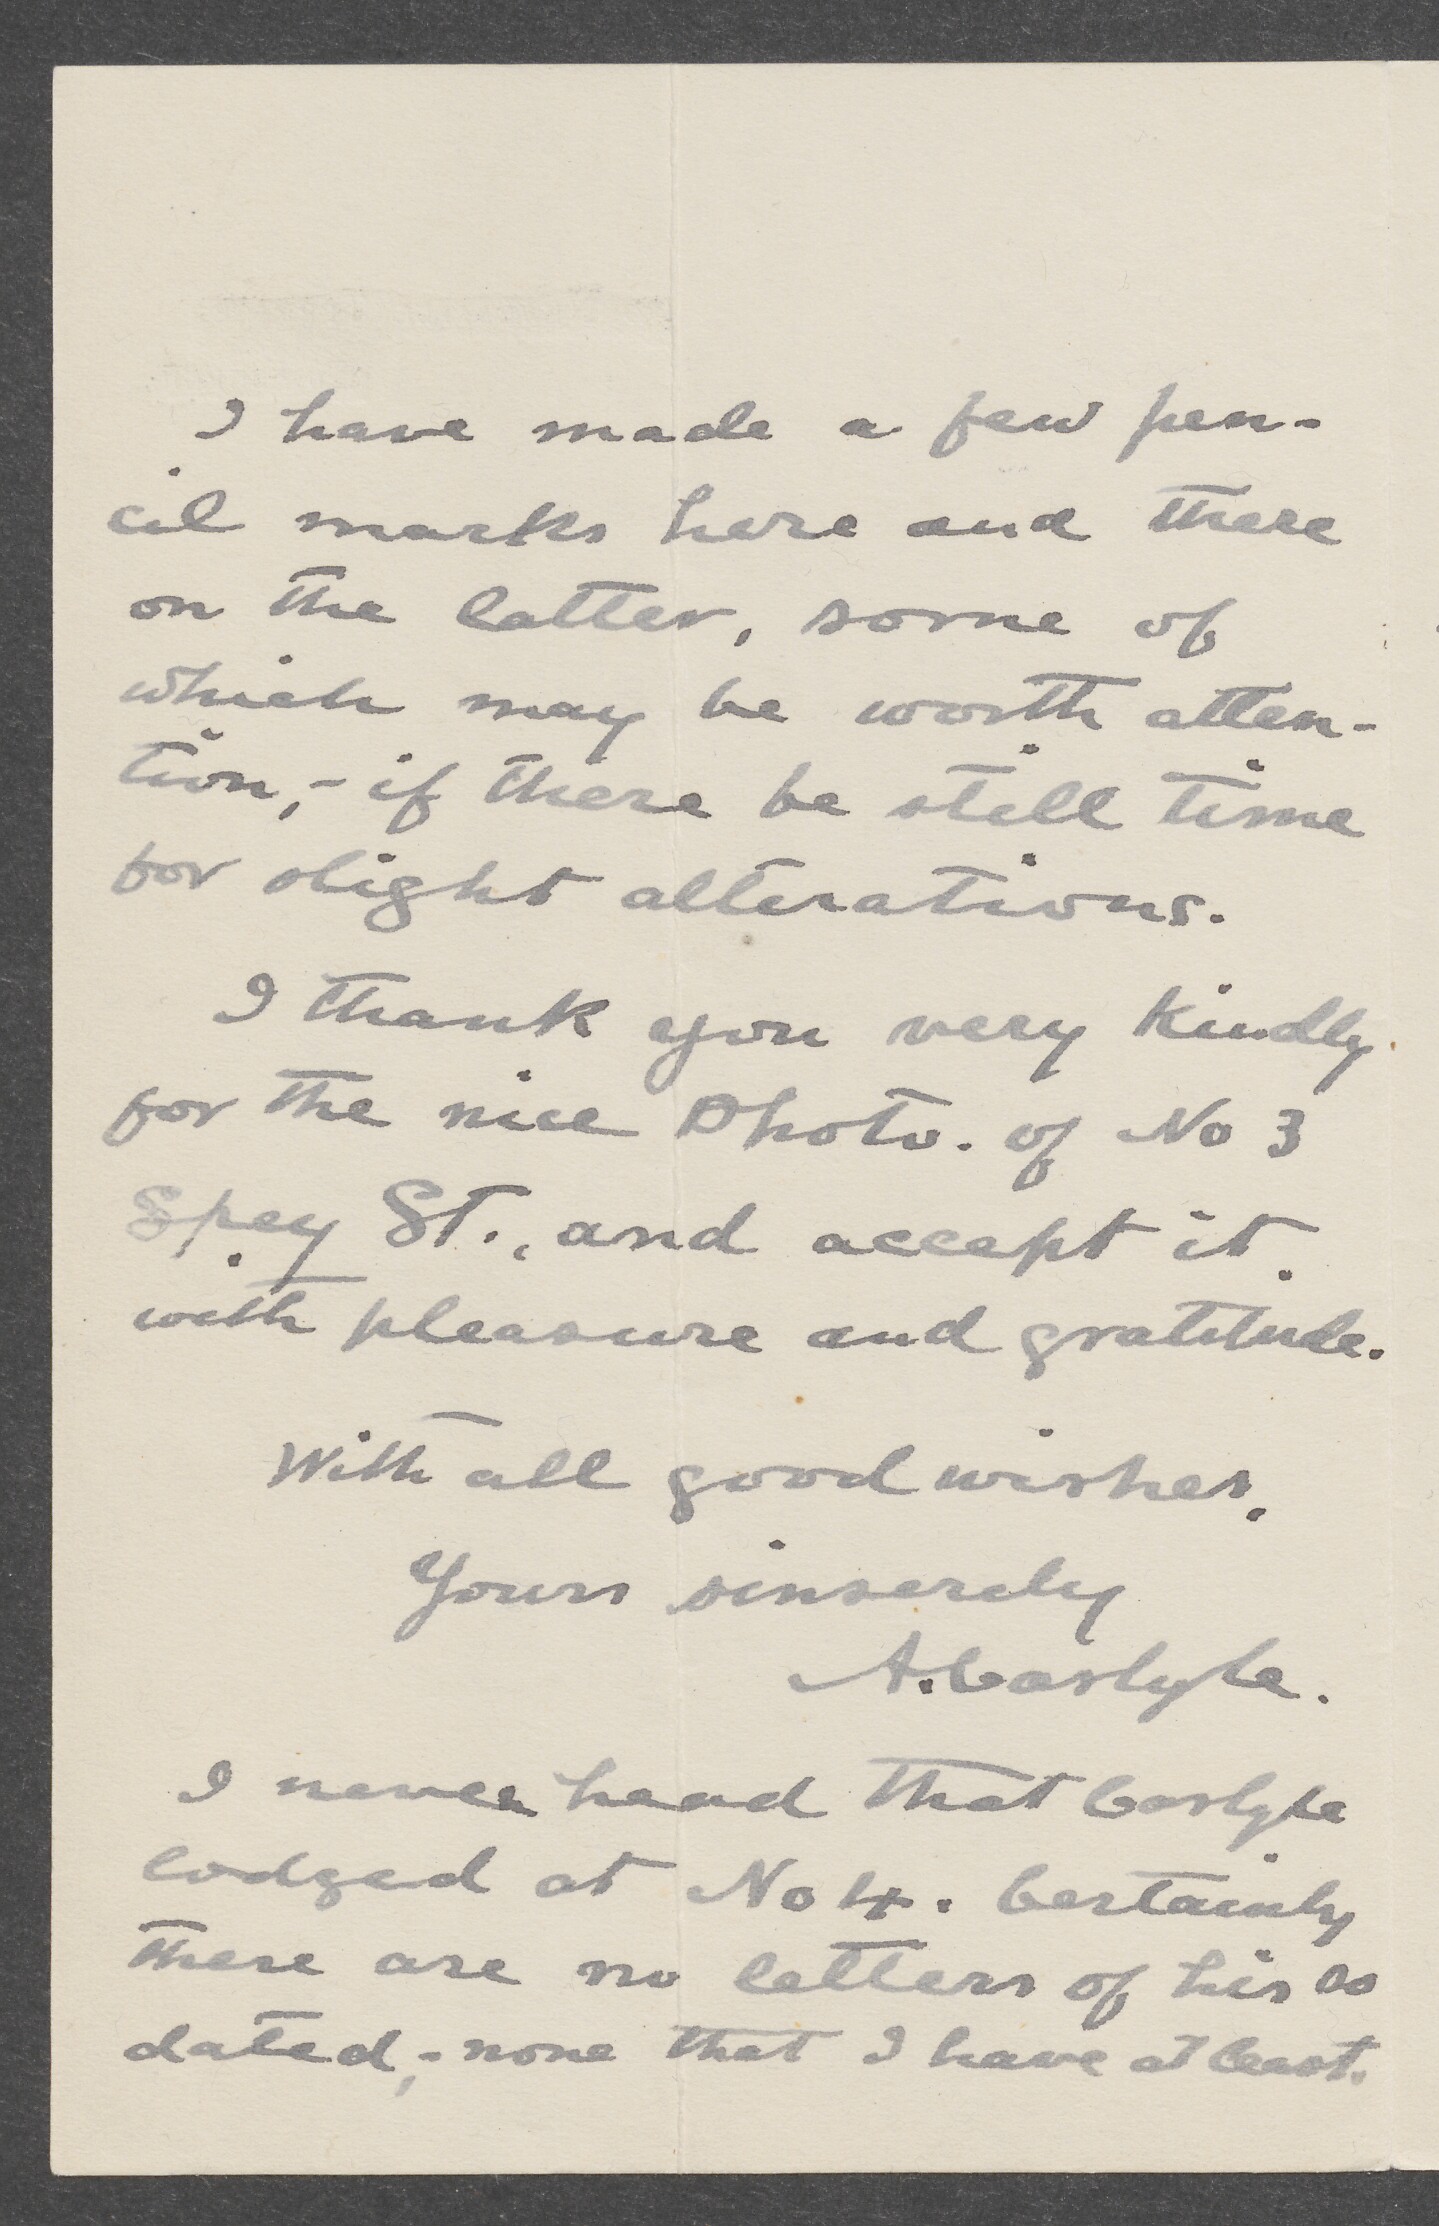 I have made a few pen-
cil marks here and there
on the latter, some of
which may be worth atten-
tion,- if there be still time
for slight alterations.
I thank you very kindly
for the nice Photo. of No 3
Spey St., and accept it
with pleasure and gratitude.
With all good wishes,
Yours sincerely
A. Carlyle.
I never heard that Carlyle
lodged at No 4. Certainly
there are no letters of his so
dated,- none that I have at least.